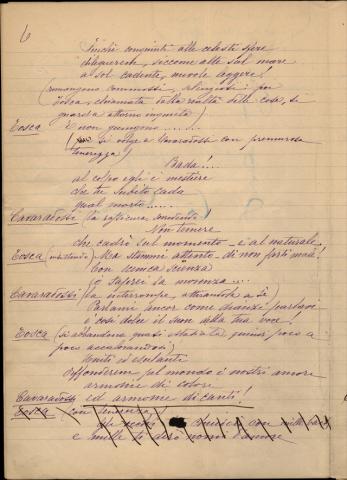 6
Finché congiunti alle celesti sfere
dilegueremo, siccome alte sul mare
a sol cadente, nuvole leggere!
(rimangono commossi, silenziosi: poi
Tosca, chiamata dalla realtà delle cose, si
guarda attorno inquieta)
Tosca E non giungono......
(si volge a Cavaradossi con premurosa
tenerezza)
Bada!...
al colpo egli è mestiere
che tu subito cada
qual morto.....
Cavaradossi (la rassicura sorridendo)
Non temere
che cadrò sul momento - e al naturale.
Tosca (insistendo) Ma stammi attento - di non farti male!
Con scenica scienza
io saprei la movenza...
Cavaradossi (la interrompe, attirandola a sé)
Parlami ancor come dianzi parlavi
è così dolce il suon della tua voce!
Tosca (si abbandona quasi estasiata, quindi poco a
poco accalorandosi)
Uniti ed esulanti
diffonderem pel mondo i nostri amori
armonie di colore
Cavaradossi ed armonie di canti!
Tosca (con tenerezza)
gli occhi ti chiuderò con mille baci
e mille ti dirò nomi d'amore